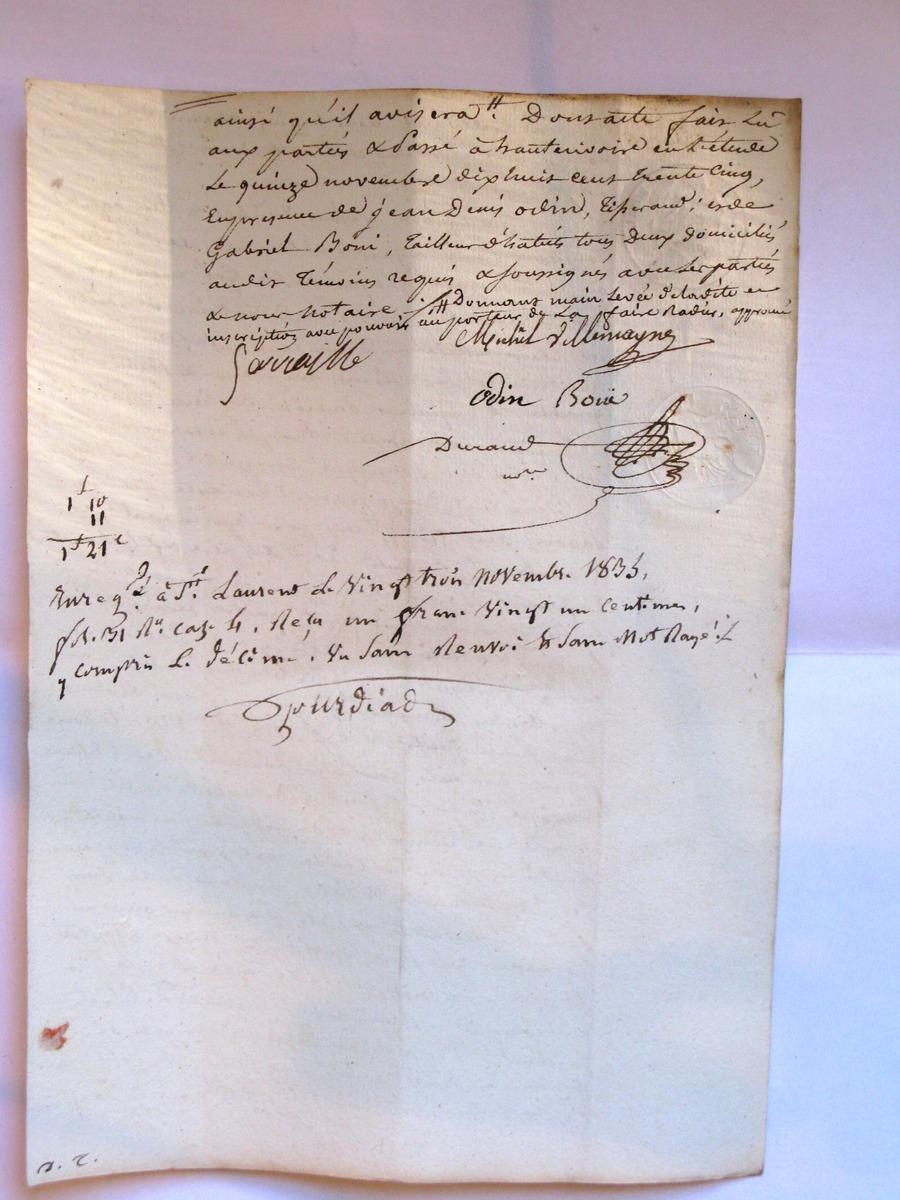 ainsi qu'il avisera #. Dont acte fait Lû
aux parties & Passé à hauterivoire en L'étude
Le quinze novembre dix huit cent trente Cinq,
En presence de jean Denis odin, Tisserand; et de
Gabriel Boni, Tailleur d'habits, tous Deux domiciliés
audit Témoins requis & soussignés avec Les parties
& nous notaire # Donnant main Levée de ladite
inscription avec pouvoir au porteur de La faire Radier, approuvé
Michel Villemagne
odin Bonie
Durand
nre
1f 10
11
1f 21c
Enregé à St Laurent Le Vingt trois Novembre 1835,
fol. 31 Ro case 4, Reçu un franc Vingt un Centimes,
y compris Le décime, Vu Sans Renvoi & Sans Mot Rayé